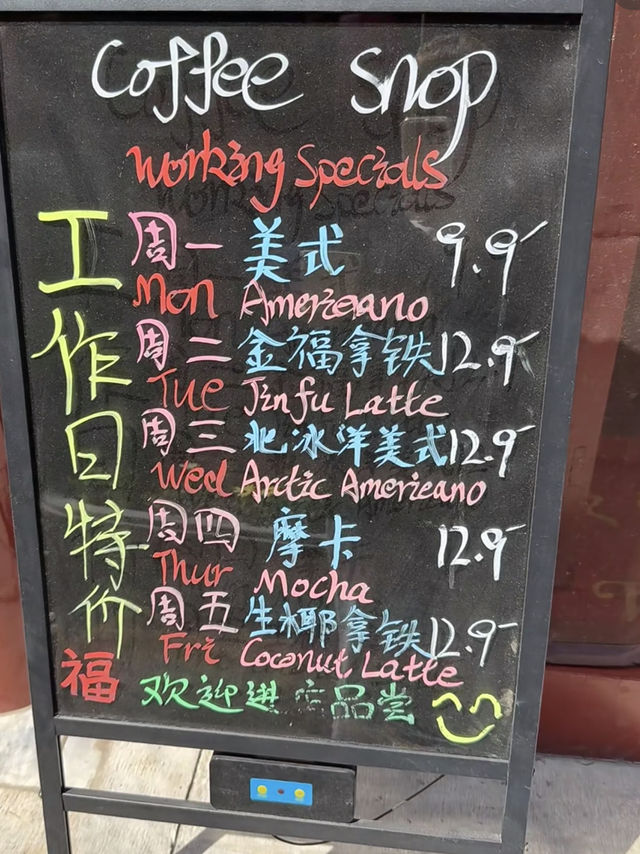 Coffee Shop
Working Specials
工作日特价
周一 美式 9.9
Mon Americano
周二 金福拿铁 12.9
Tue Jinfu Latte
周三 北冰洋美式 12.9
Wed Arctic Americano
周四 摩卡 12.9
Thur Mocha
周五 生椰拿铁 12.9
Fri Coconut Latte
福
欢迎进店品尝